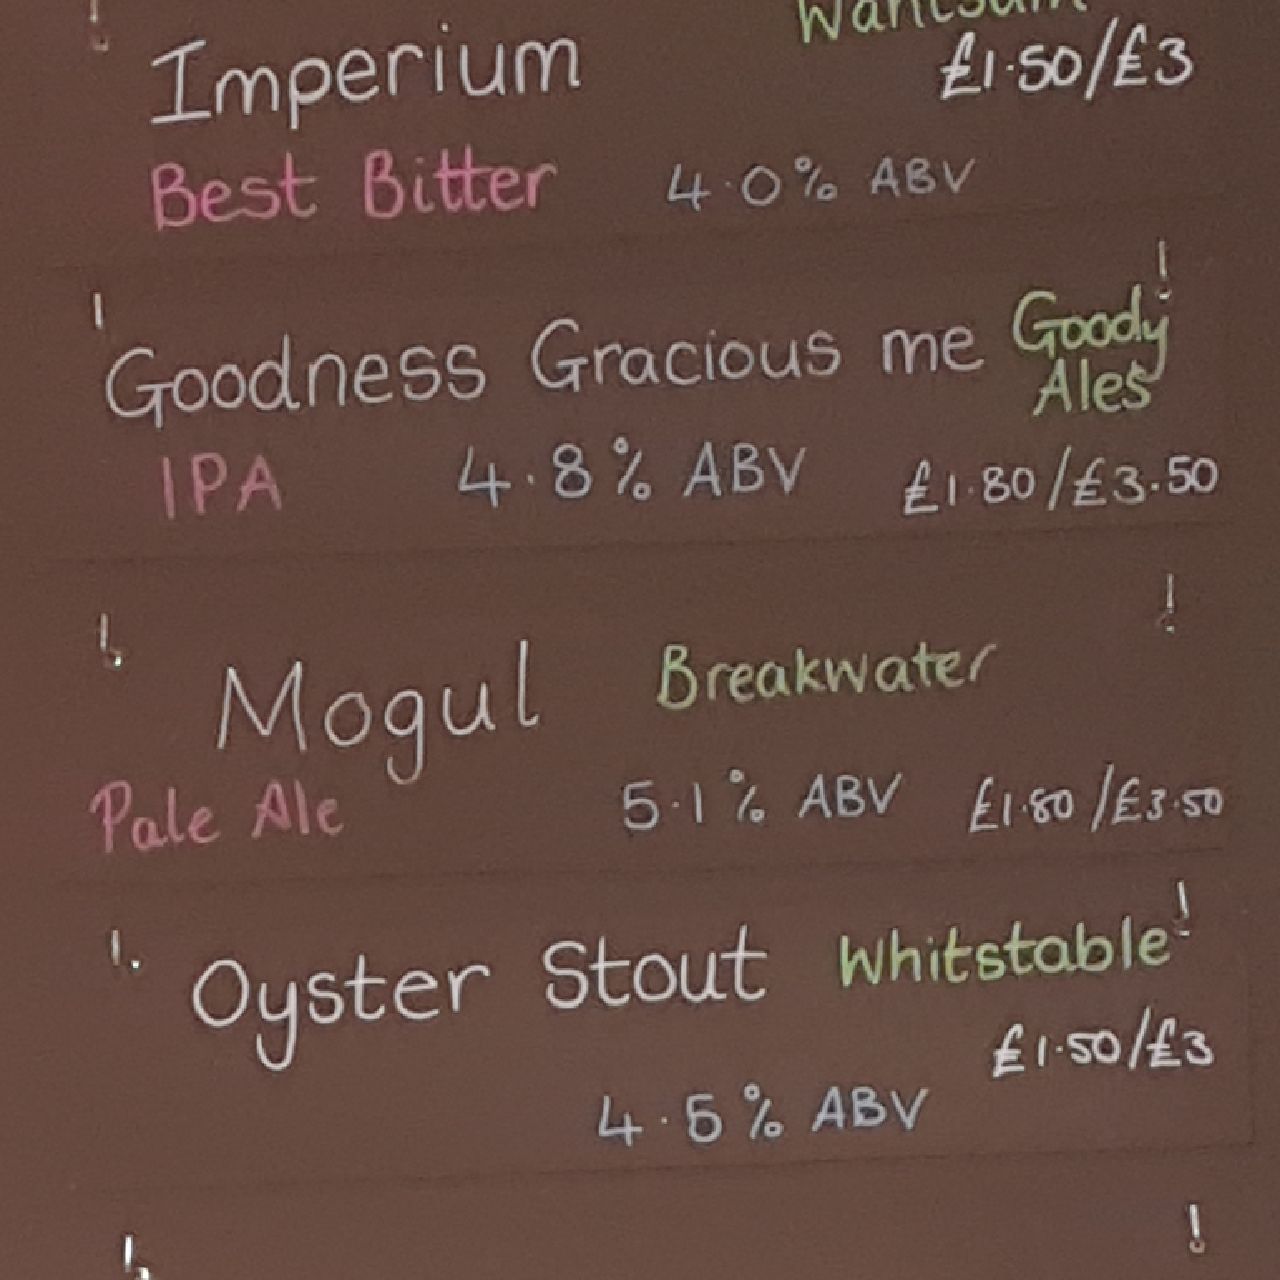 Wantsum
Imperium £1.50/£3
Best Bitter 4.0% ABV
Goodness Gracious me Goody
Ales
IPA 4.8% ABV £1.80/£3.50
Mogul Breakwater
Pale Ale 5.1% ABV £1.80/£3.50
Oyster Stout Whitstable
£1.50/£3
4.5% ABV